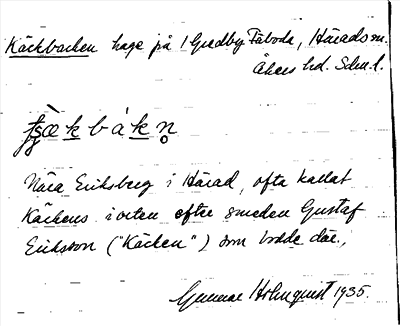 Käckbacken hage på 1 Gredby Fäboda, Härads sn.
Åkers hd. Sdm. l.
Nära Eriksberg i Härad, ofta kallat
Käckens i orten efter smeden Gustaf
Eriksson ("Käcken") som bodde där.,
Gunnar Holmquist 1935.